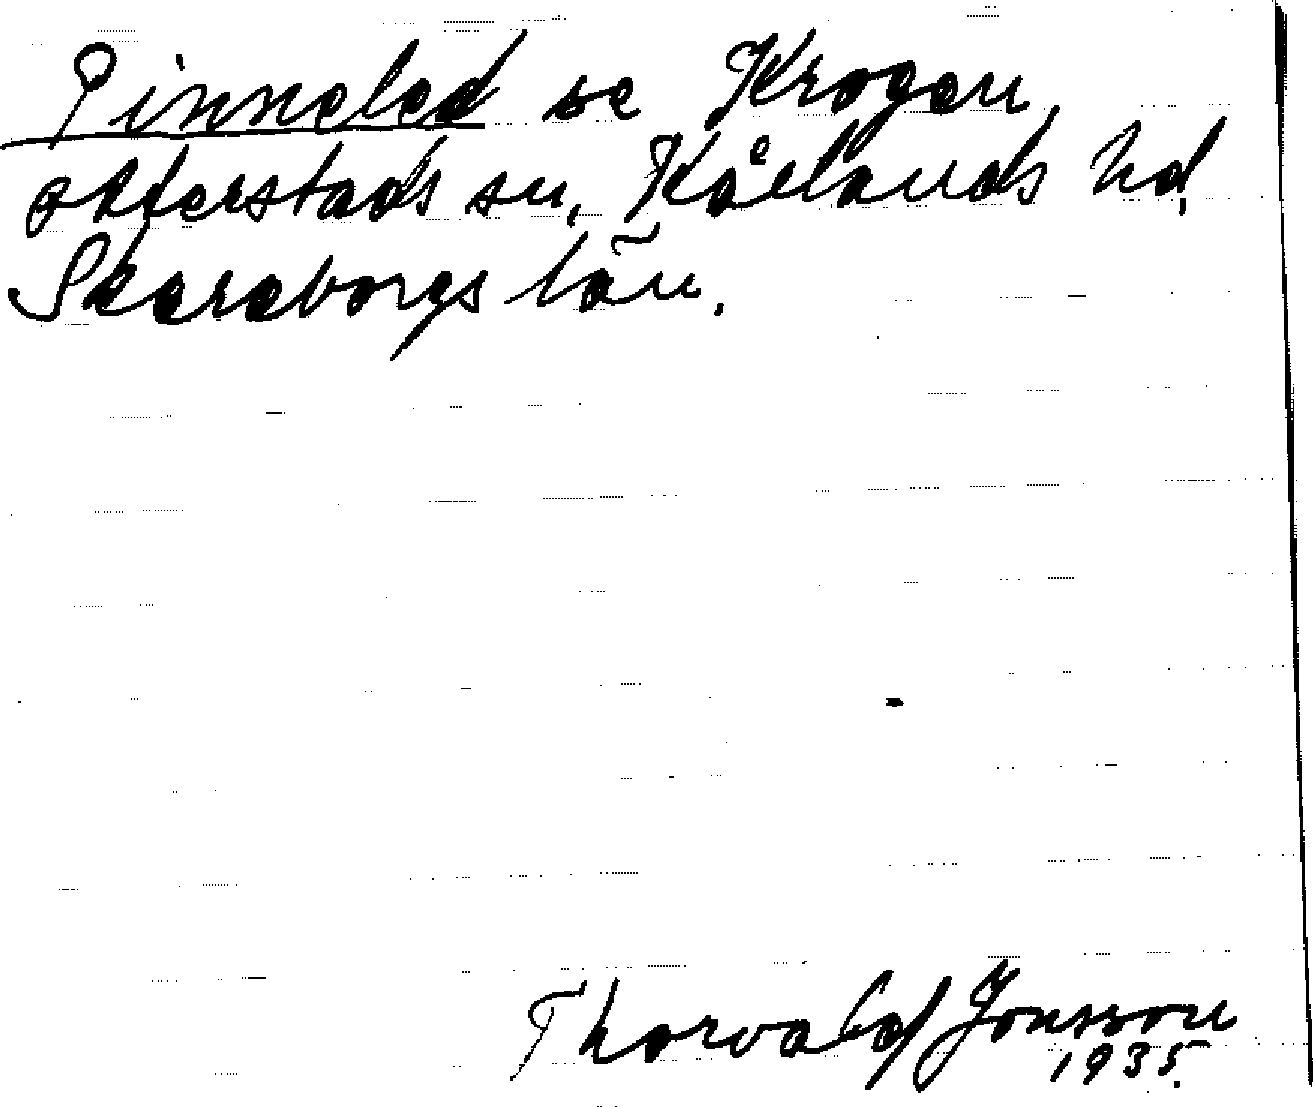 Pinneled se Krogen,
Otterstads sn, Kållands hd,
Skaraborgs län.
Thorvald Jonsson
1935.